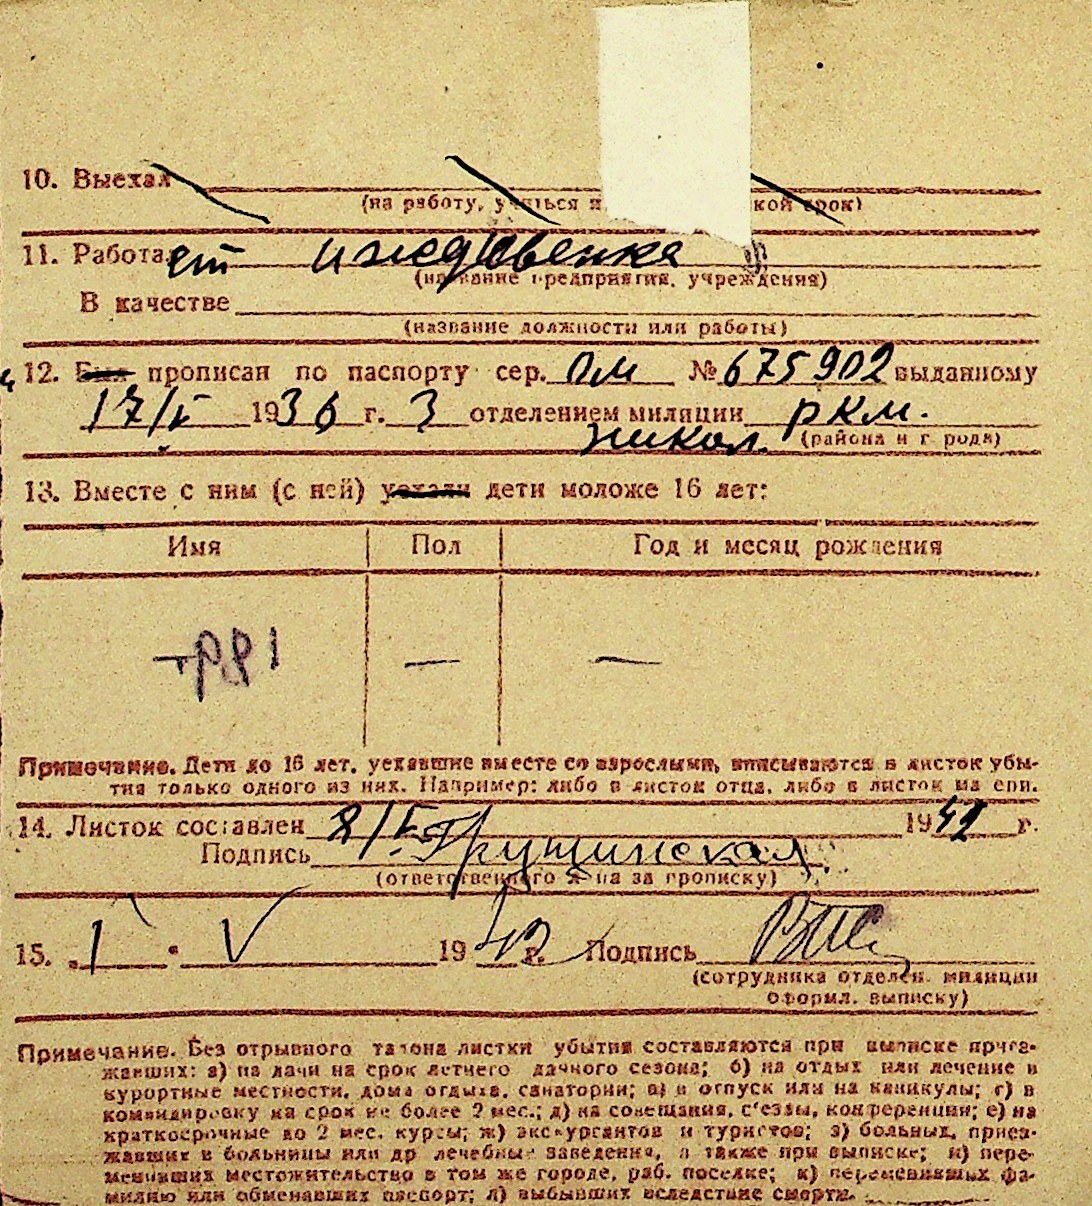 10. Выехал
(на работу, учиться и кой срок)
11. Работает иждивенка
(название предприятия, учреждения)
В качестве
(название должности или работы)
12. Был прописан по паспорту сер. ПМ № 675902 выданному
17/V 1936 г. 3 отделением милиции РКМ.
никол. (района и города)
13. Вместе с ним (с ней) уехали дети моложе 16 лет:
Имя Пол Год и месяц рождения
— —
Примечание. Дети до 16 лет, уехавшие вместе со взрослыми, вписываются в листок убы-
тия только одного из них. Например: либо в листок отца, либо в листок матери.
14. Листок составлен 8/V 1942 г.
Подпись Грущинская
(ответственного л-ца за прописку)
15. „1" V 1942 г. Подпись
(сотрудника отделен. милиции
оформл. выписку)
Примечание. Без отрывного талона листки убытия составляются при выписке приез-
жавших: а) на дачи на срок летнего дачного сезона; б) на отдых или лечение в
курортные местности, дома отдыха, санатории; в) в отпуск или на каникулы; г) в
командировку на срок не более 2 мес.; д) на совещания, с'езды, конференции; е) на
краткосрочные до 2 мес. курсы; ж) экскурсантов и туристов; з) больных, приез-
жавших в больницы или др лечебные заведения, а также при выписке; и) пере-
менивших местожительство в том же городе, раб. поселке; к) переменивших фа-
милию или обменавших паспорт; л) выбывших вследствие смерти.